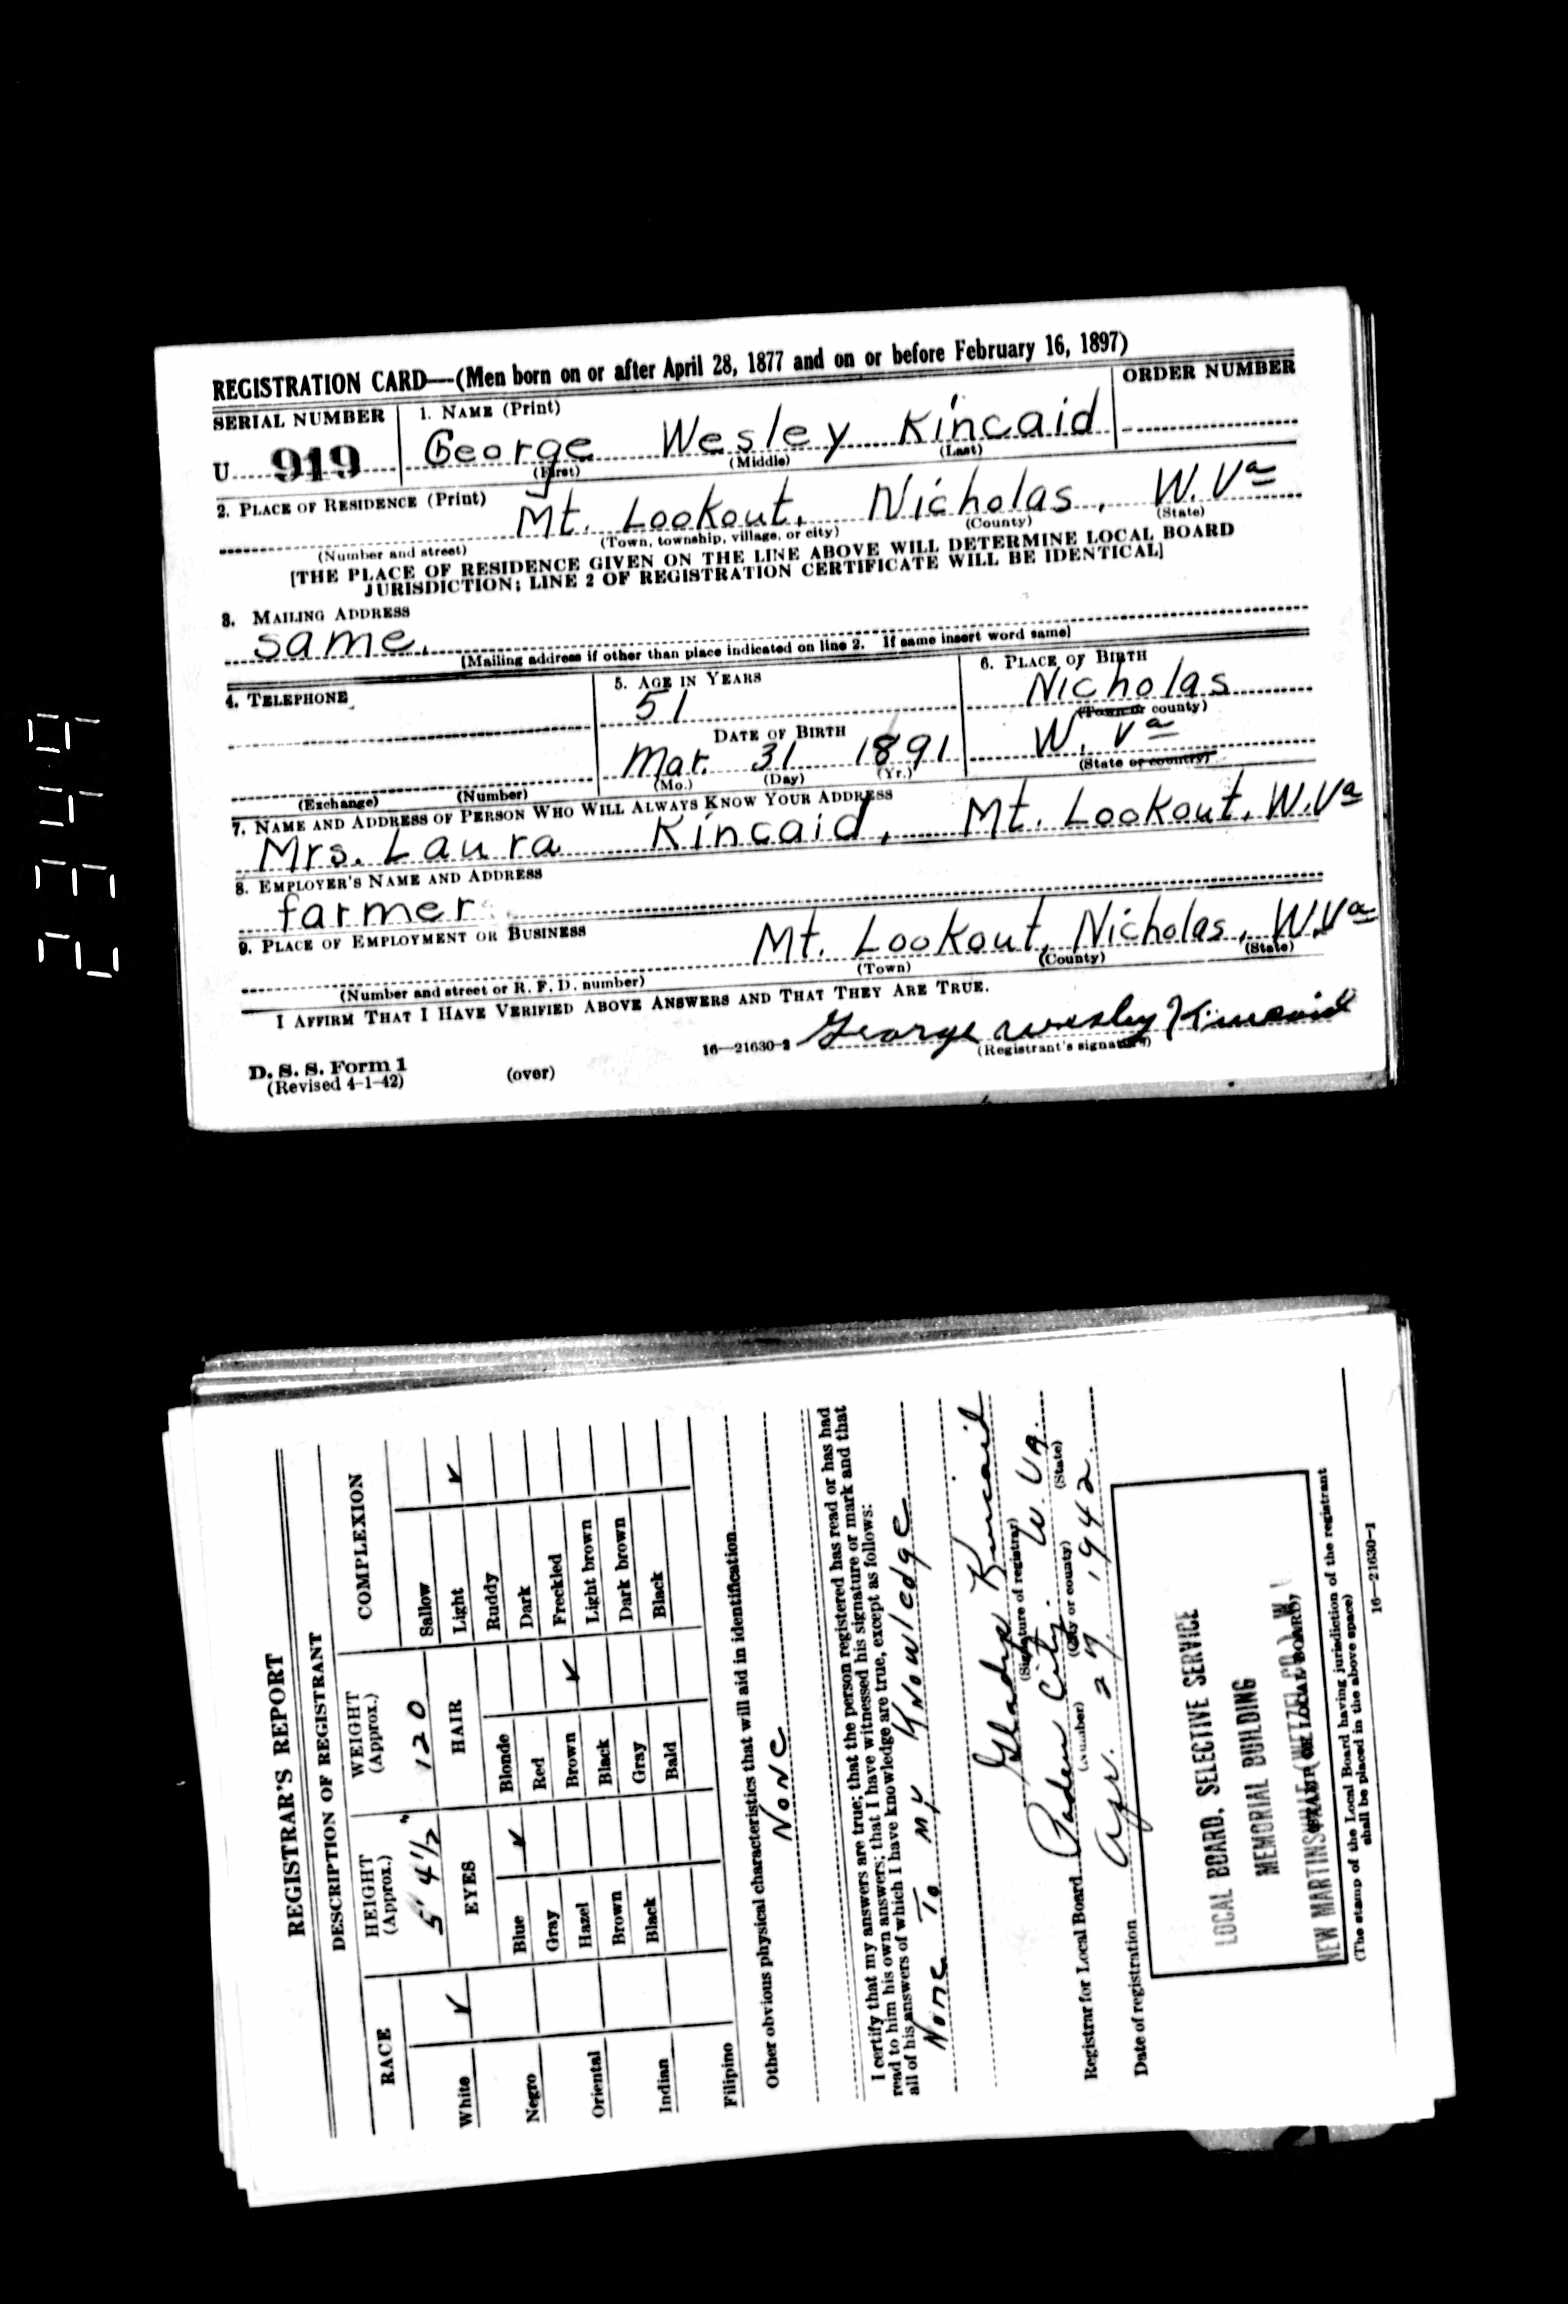 REGISTRATION CARD—(Men born on or after April 28, 1877 and on or before February 16, 1897)
SERIAL NUMBER 1. NAME (Print) ORDER NUMBER
U 919 George Wesley Kincaid
(First) (Middle) (Last)
2. PLACE OF RESIDENCE (Print)
Mt. Lookout, Nicholas, W. Va
(Number and street) (Town, township, village, or city) (County) (State)
[THE PLACE OF RESIDENCE GIVEN ON THE LINE ABOVE WILL DETERMINE LOCAL BOARD
JURISDICTION; LINE 2 OF REGISTRATION CERTIFICATE WILL BE IDENTICAL]
3. MAILING ADDRESS
same.
[Mailing address if other than place indicated on line 2. If same insert word same]
4. TELEPHONE 5. AGE IN YEARS 6. PLACE OF BIRTH
51 Nicholas
(Town or county)
DATE OF BIRTH
Mar. 31 1891 W. Va
(Exchange) (Number) (Mo.) (Day) (Yr.) (State or country)
7. NAME AND ADDRESS OF PERSON WHO WILL ALWAYS KNOW YOUR ADDRESS
Mrs. Laura Kincaid, Mt. Lookout, W.Va
8. EMPLOYER'S NAME AND ADDRESS
farmer
9. PLACE OF EMPLOYMENT OR BUSINESS
Mt. Lookout, Nicholas, W.Va
(Number and street or R. F. D. number) (Town) (County) (State)
I AFFIRM THAT I HAVE VERIFIED ABOVE ANSWERS AND THAT THEY ARE TRUE.
George Wesley Kincaid
D. S. S. Form 1
(Revised 4-1-42) (over) 16—21630-2 (Registrant's signature)
REGISTRAR'S REPORT
DESCRIPTION OF REGISTRANT
RACE HEIGHT (Approx.) WEIGHT (Approx.) COMPLEXION
5' 4 1/2" 120
EYES HAIR
White ✓ Blue ✓ Blonde Sallow
Light ✓
Negro Gray Red Ruddy
Dark
Oriental Hazel Brown ✓ Freckled
Brown Black Light brown
Indian Black Gray Dark brown
Bald Black
Filipino
Other obvious physical characteristics that will aid in identification
None
I certify that my answers are true; that the person registered has read or has had
read to him his own answers; that I have witnessed his signature or mark and that
all of his answers of which I have knowledge are true, except as follows:
None To my Knowledge
Gladys Kincaid
(Signature of registrar)
Registrar for Local Board Paden City. W. Va.
(Number) (City or county) (State)
Date of registration Apr. 27, 1942.
LOCAL BOARD, SELECTIVE SERVICE
MEMORIAL BUILDING
NEW MARTINSVILLE (WETZEL CO.) W.
STAMP OF LOCAL BOARD
(The stamp of the Local Board having jurisdiction of the registrant
shall be placed in the above space)
16—21630-1